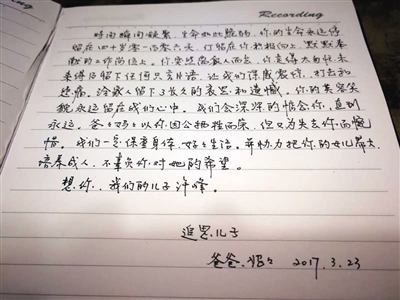 Recording
时间瞬间凝聚，生命如此脆弱，你的生命永远停
留在四十岁零一百零六天，停留在你积极向上，默默奉
献的工作岗位上。你突然离家人而去，你走得太匆忙未
来得及留下任何只言片语，让我们深感震惊，打击和
悲痛。给家人留下了长久的哀思和遗憾。你的英容笑
貌永远留在我们心中。我们会深深的惦念你，直到
永远。爸爸妈妈以你因公牺牲而荣，但又为失去你而惋
惜。我们一定保重身体，好好生活。并协力把你的女儿带大
培养成人，不辜负你对她的希望。
想你，我们的儿子许峰。
追思儿子
爸爸、妈妈 2017.3.23